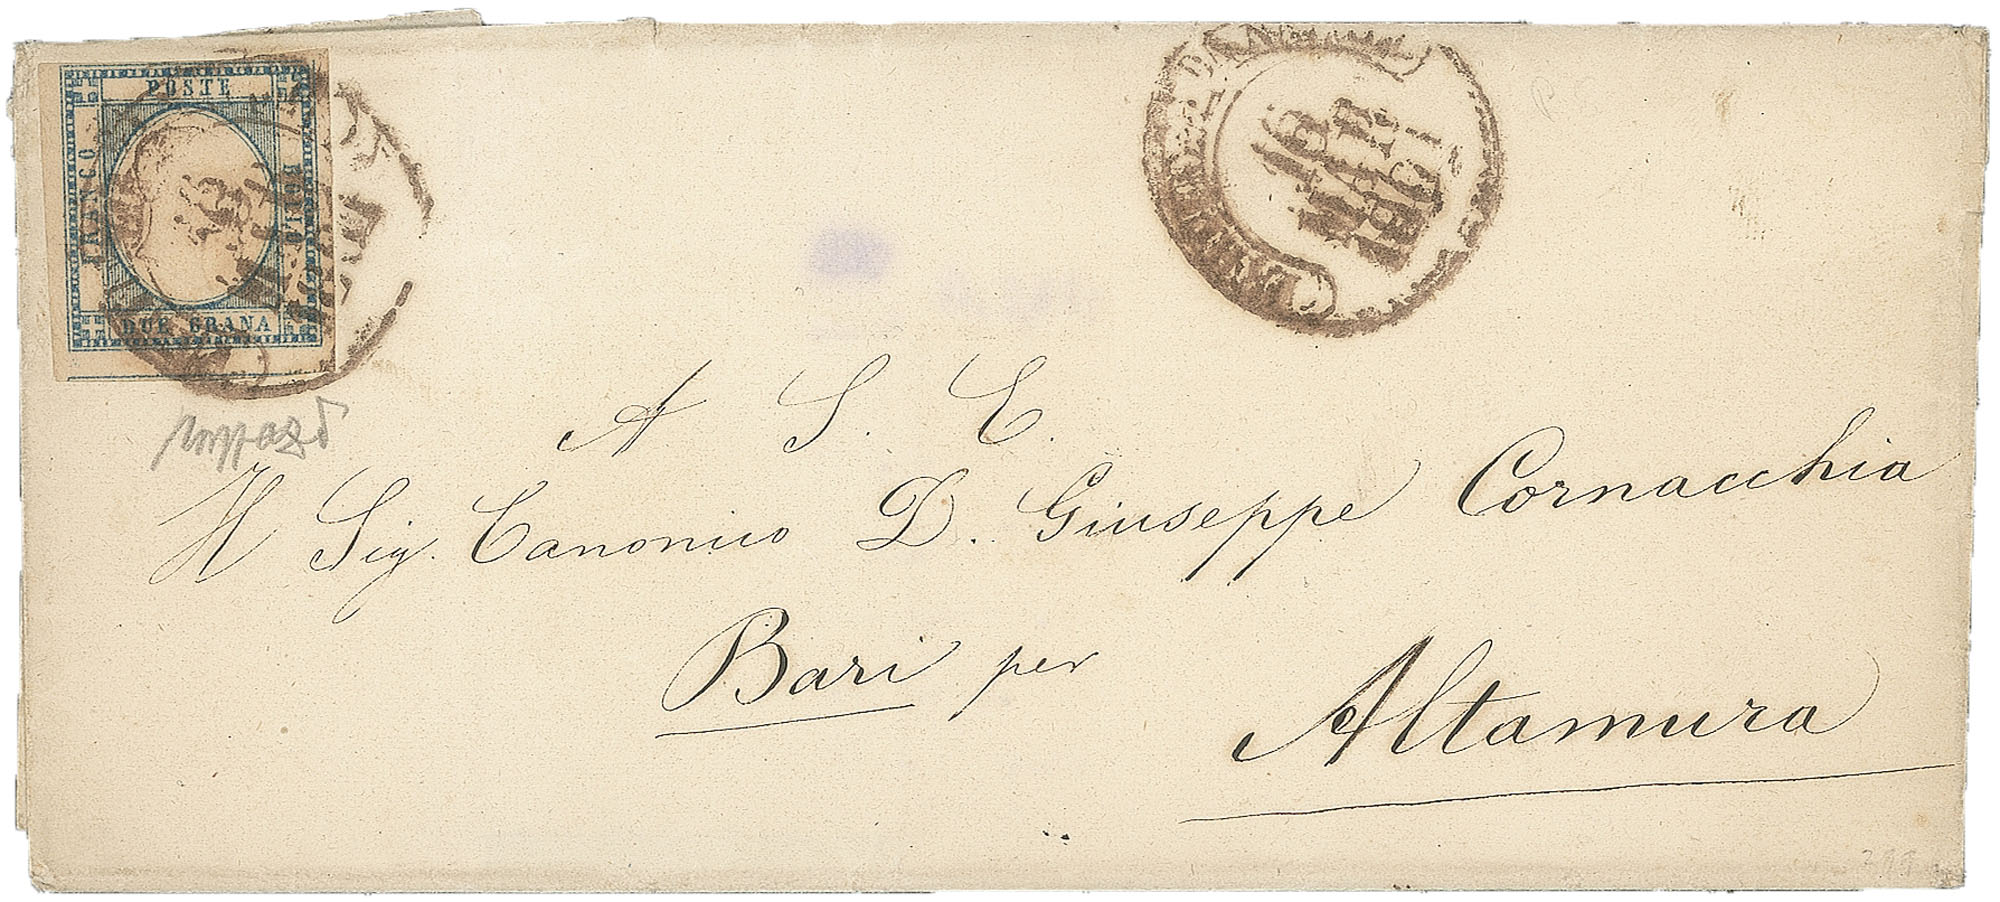 POSTE
FRANCO
BOLLO
DUE GRANA
16
1861
A S. E.
Il Sig. Canonico D. Giuseppe Cornacchia
Bari per
Altamura